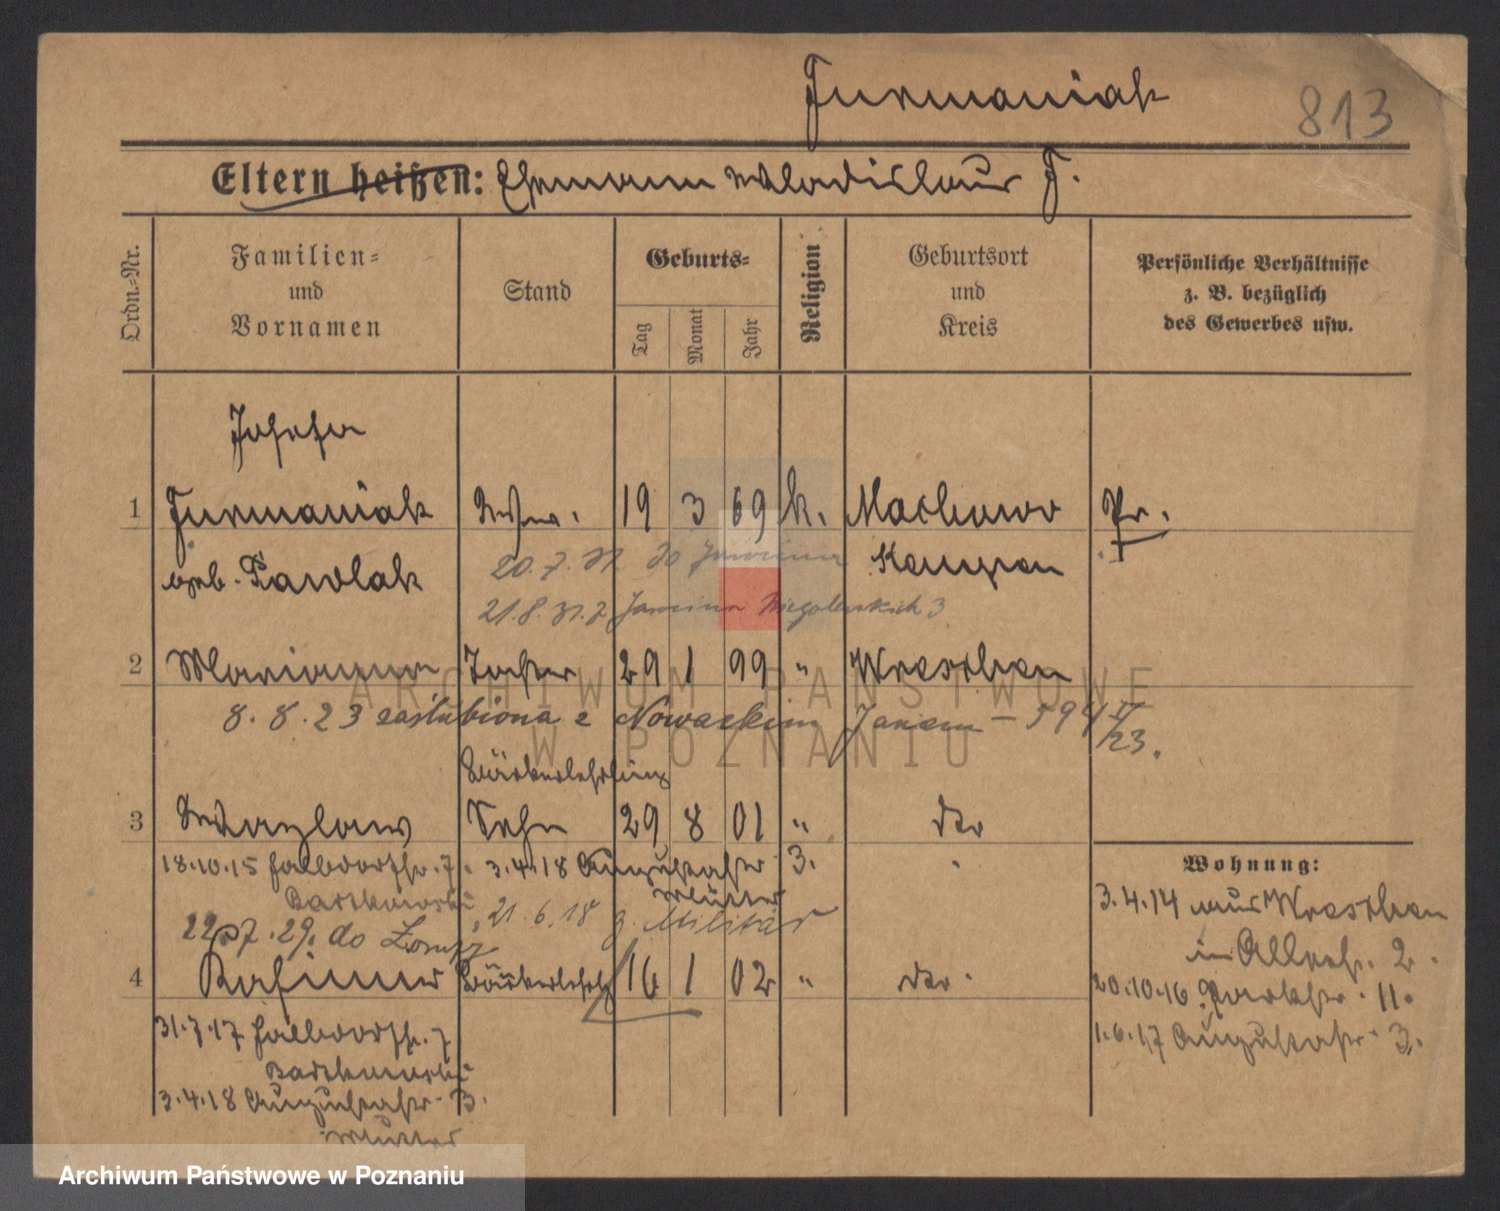 Furmaniak
813
Eltern heißen: Ehemann Wladislaus F.
Ordn.-Nr.
Familien-
und
Vornamen
Stand
Geburts-
Tag
Monat
Jahr
Religion
Geburtsort
und
Kreis
Persönliche Verhältnisse
z. B. bezüglich
des Gewerbes usw.
Josefa
1 Furmaniak Wwe. 19 3 69 k. Machowo Pr.
20.7.31 do Jarocina
geb. Pawlak Kempen
21.8.31. z Jarocina Niegolewskich 3
2 Marianna Tochter 29 1 99 " Wreschen
8.8.23 zaślubiona z Nowackim Janem - 594 IV/23.
Bäckerlehrling
3 Wazlaw Sohn 29 8 01 " do
18.10.15 Halbdorfstr. 7. 3.4.18 Augustastr 3.
Bartkowski Mutter
21.6.18 z. Militär
22.7.29. do
4 Kasimir Bäckerlehrl 16 1 02 " do.
31.7.17 Halbdorfstr. 7
Bartkowski
3.4.18 Augustastr. 3.
Mutter
Wohnung:
3.4.14 aus Wreschen
2.
20.10.16 Parkstr. 11.
1.6.17 Augustastr. 3.
ARCHIWUM PAŃSTWOWE
W POZNANIU
Archiwum Państwowe w Poznaniu